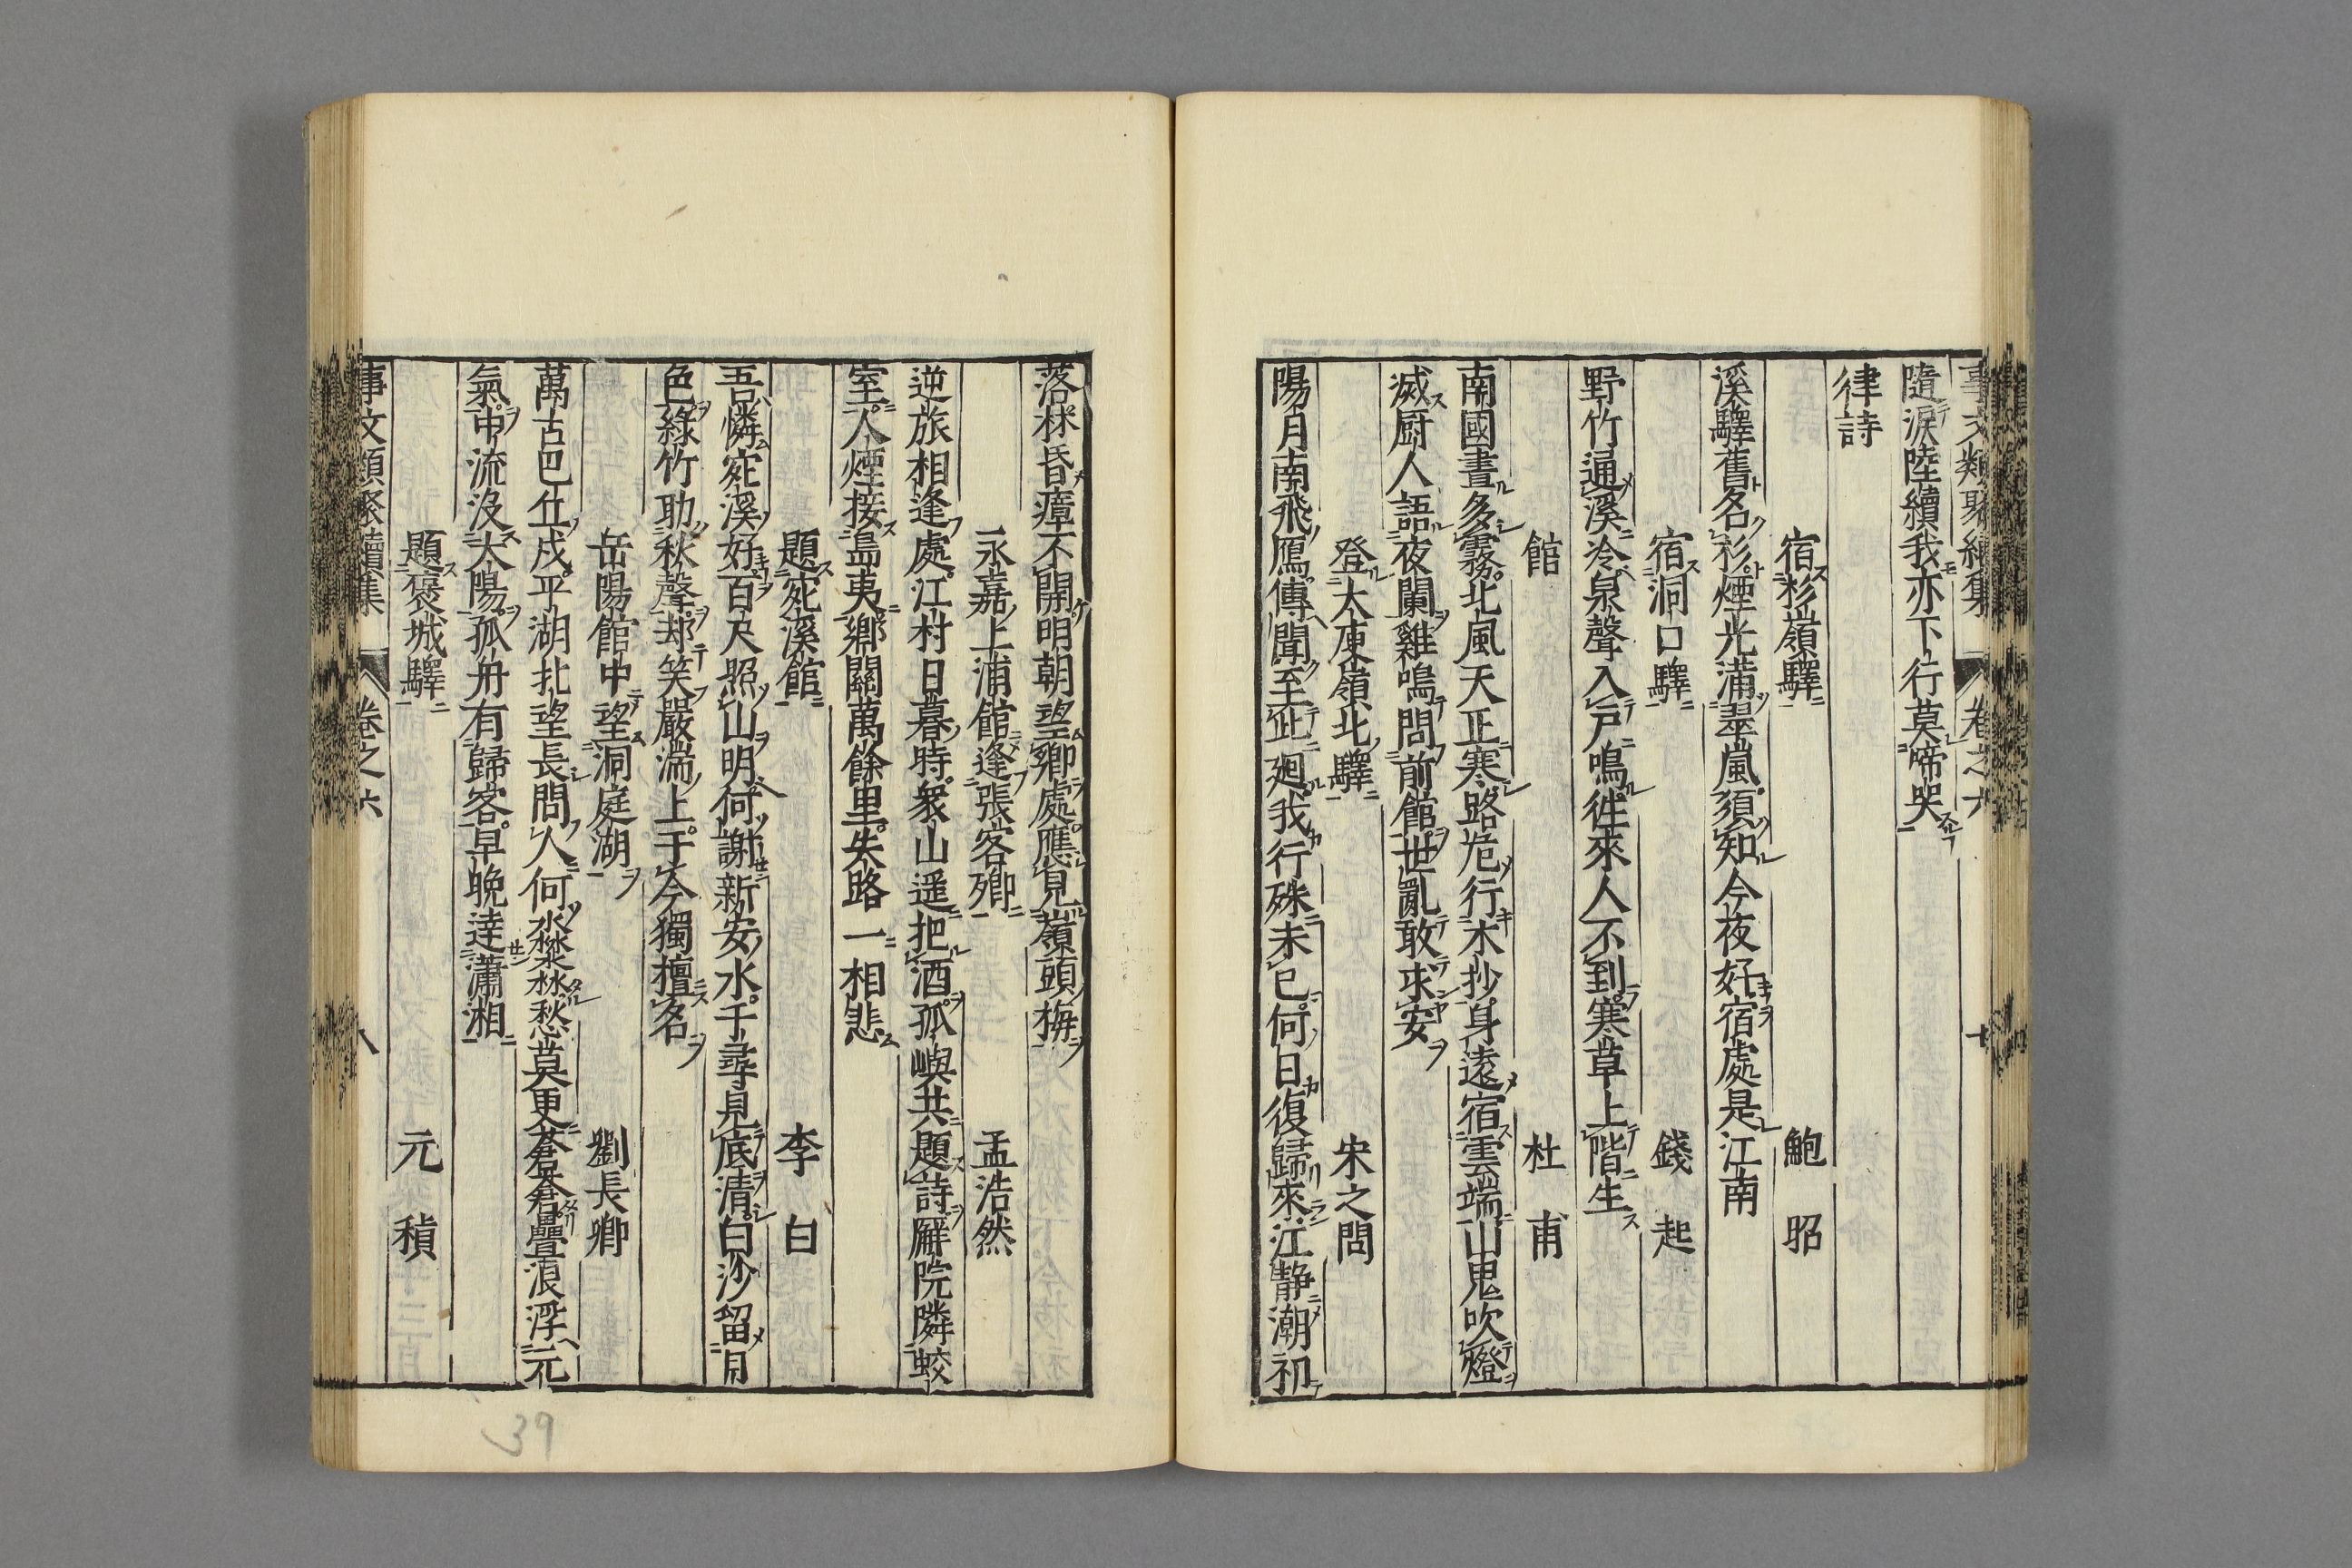 事文類聚續集 卷之六
隨淚陸續我亦下行莫啼哭
律詩
宿杉嶺驛 鮑 昭
溪驛舊名杉煙光滿翠嵐須知今夜好宿處是江南
宿洞口驛 錢 起
野竹通溪冷泉聲入戶鳴徃來人不到寒草上階生
館 杜 甫
南國晝多霧北風天正寒路危行木抄身遠宿雲端山鬼吹燈
滅厨人語夜闌雞鳴問前館世亂敢求安
登大庾嶺北驛 宋之問
陽月南飛鴈傳聞至此廻我行殊未已何日復歸來江静潮初
落林昏瘴不開明朝望鄉處應見嶺頭梅
永嘉上浦館逢張客卿 孟浩然
逆旅相逢處江村日暮時衆山遥把酒孤嶼共題詩廨院隣蛟
室人煙接島夷鄉關萬餘里失路一相悲
題宛溪館 李 白
吾憐宛溪好百尺照山明何謝新安水千尋見底清白沙留月
色綠竹助秋聲却笑嚴湍上于今獨擅名
岳陽館中望洞庭湖 劉長卿
萬古巴丘戍平湖北望長問人何淼淼愁莫更蒼蒼疊浪浮元
氣中流沒太陽孤舟有歸客早晚達瀟湘
題褒城驛 元 稹
事文類聚續集 卷之六 八
39